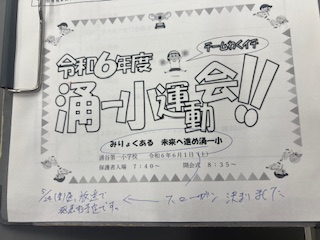 チームわくイチ
令和6年度
涌一小運動会!!
みりょくある 未来へ進め涌一小
涌谷第一小学校 令和6年6月1日(土)
保護者入場 7:40〜 開会式 8:35〜
スローガン 決まりました
放送で
発表予定です。